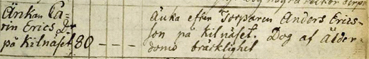 Änkan Ca-
rin Erics Dr
på Kilnäset 80 — — — Änka efter Torparen Anders Erics-
son på Kilnäset. Dog af ålder-
doms bräcklighet